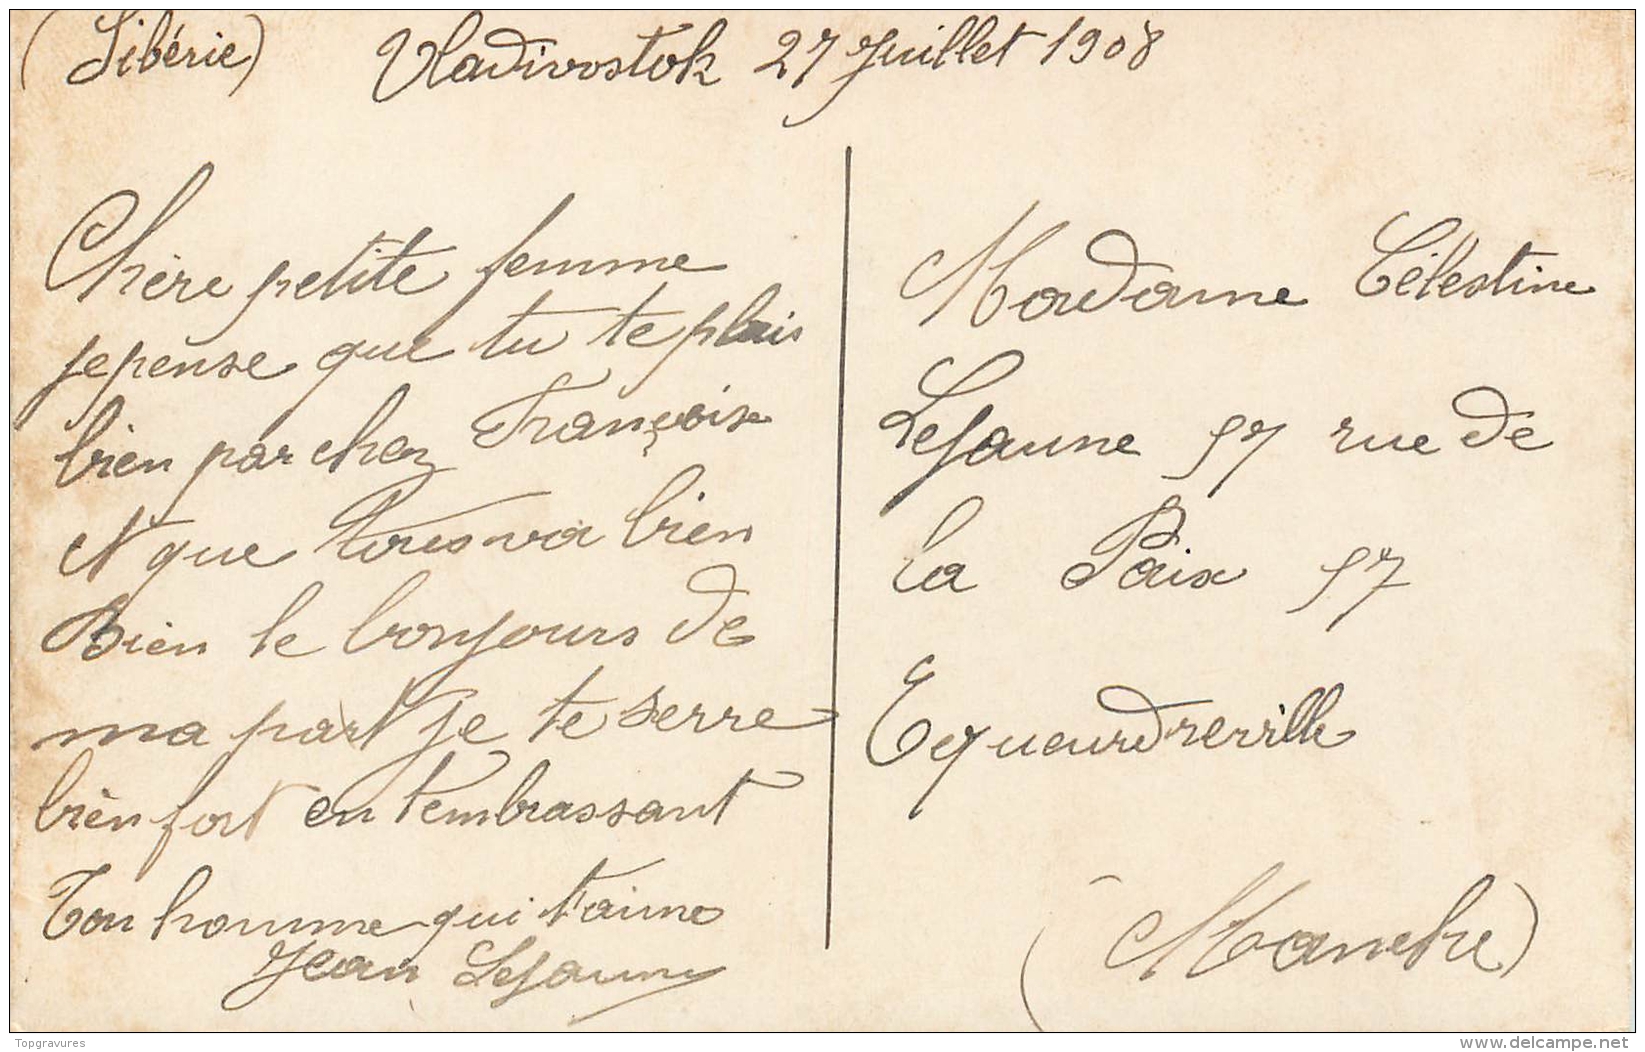 (Sibérie) Vladivostok 27 Juillet 1908
Chère petite femme
je pense que tu te plais
bien par chez Françoise
et que tous va bien
Bien le bonjours de
ma part je te serre
bien fort en t'embrassant
Ton homme qui t'aime
Jean Lejaune
Madame Célestine
Lejaune 57 rue de
la Paix 57
Equeurdreville
(Manche)
Topgravures
www.delcampe.net